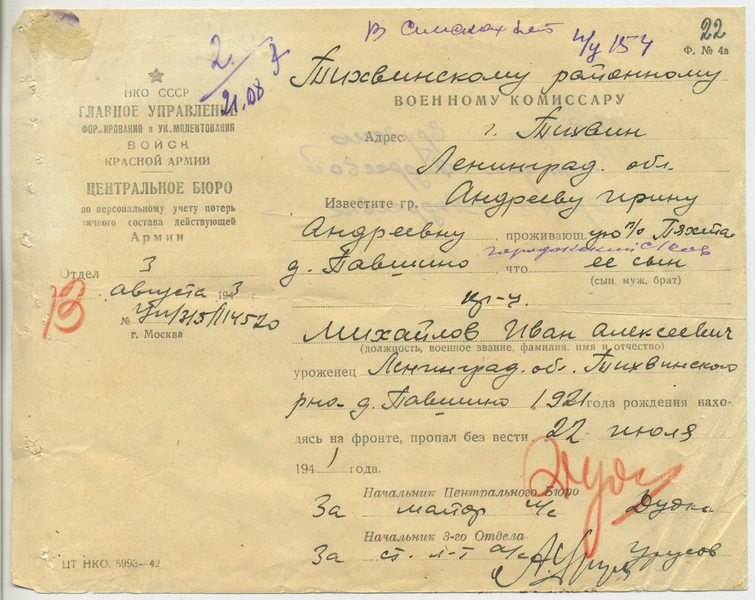 В списках нет
22
и/у 154
Ф. № 4а
2
21.08
НКО СССР
ГЛАВНОЕ УПРАВЛЕНИЕ
ФОР..ИРОВАНИЯ и УК.МПЛЕКТОВАНИЯ
ВОЙСК
КРАСНОЙ АРМИИ
ЦЕНТРАЛЬНОЕ БЮРО
по персональному учету потерь
личного состава действующей
Армии
Отдел 3
3 августа 1943 г
№ 14520
г. Москва
ЦТ НКО. 5993—42
Тихвинскому районному
ВОЕННОМУ КОМИССАРУ
Адрес: г. Тихвин
Ленинград. обл.
Известите гр. Андрееву Ирину
Андреевну, проживающ. ую п/о Пяхта
городокский с/сов
д. Павшино что ее сын
(сын муж, брат)
кр-ц
Михайлов Иван Алексеевич
(должность, военное звание, фамилия, имя и отчество)
уроженец Ленинград. обл. Тихвинского
р-на д. Павшино 1921 года рождения нахо-
дясь на фронте, пропал без вести 22 июля
1941 года.
Начальник Центрального Бюро
За майор и/с Дудка
Начальник 3-го Отдела
За ст. л-т а/с Урусов